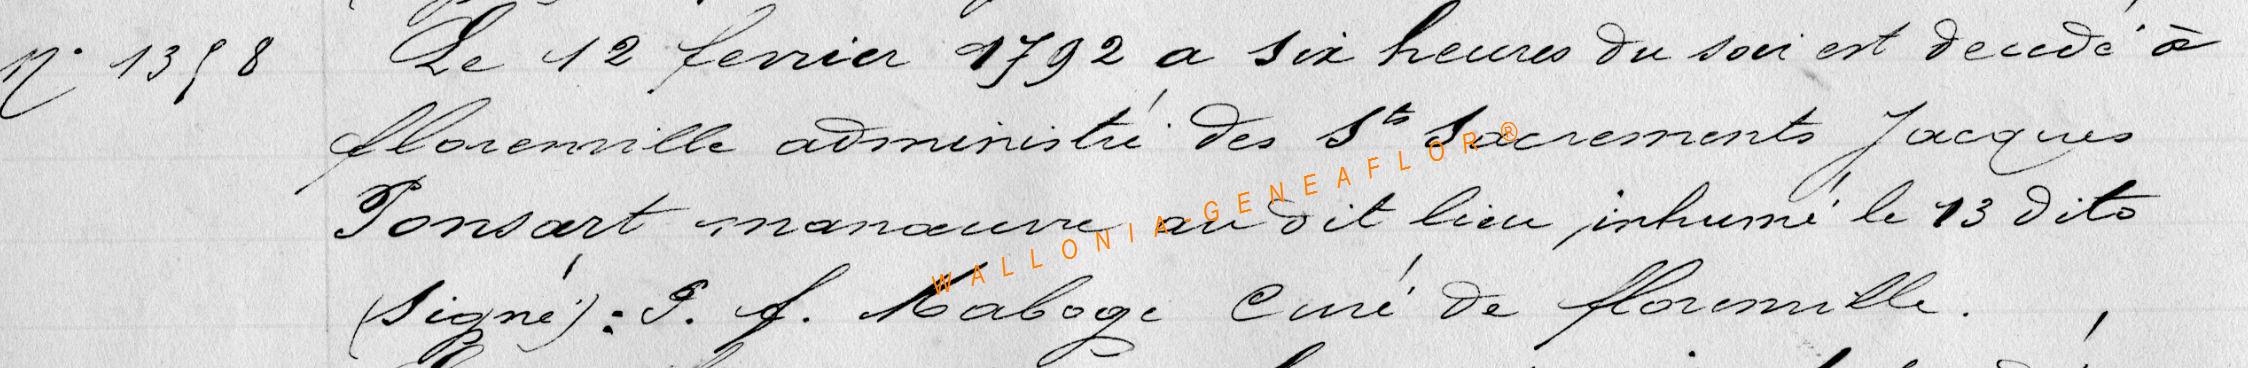 N° 1358 Le 12 fevrier 1792 a six heures du soir est decedé à
florenville administré des Sts Sacrements Jacques
Ponsart manœuvre audit lieu inhumé le 13 dito
(signé) : P. f. Maboge Curé de florenville.
WALLONIA-GENEAFLOR®